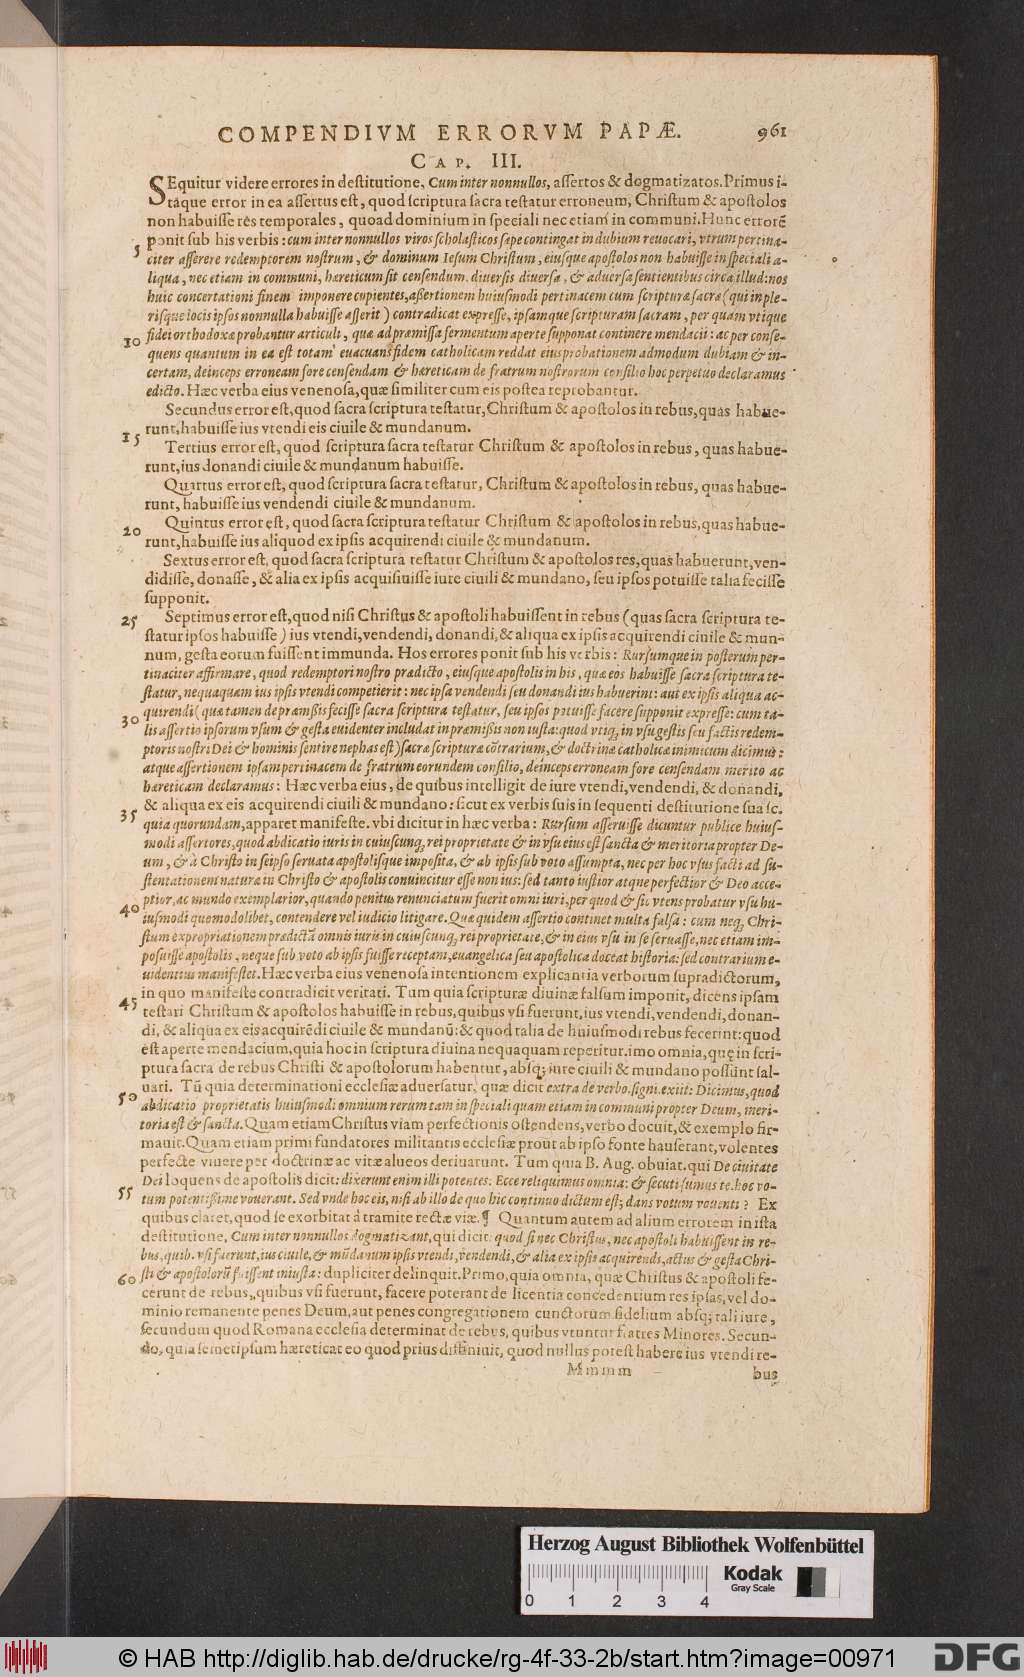 COMPENDIVM ERRORVM PAPÆ. 961
CAP. III.
SEquitur videre errores in destitutione, Cum inter nonnullos, assertos & dogmatizatos. Primus i-
taque error in ea assertus est, quod scriptura sacra testatur erroneum, Christum & apostolos
non habuisse res temporales, quoad dominium in speciali nec etiam in communi. Hunc errorē
5 ponit sub his verbis: cum inter nonnullos viros scholasticos sæpe contingat in dubium reuocari, vtrum pertina-
citer asserere redemptorem nostrum, & dominum Iesum Christum, eiusque apostolos non habuisse in speciali a-
liqua, nec etiam in communi, hæreticum sit censendum. diuersis diuersa, & aduersa sentientibus circa illud: nos
huic concertationi finem imponere cupientes, aßertionem huiusmodi pertinacem cum scripturæ sacræ (qui in ple-
risque locis ipsos nonnulla habuisse asserit) contradicat expresse, ipsamque scripturam sacram, per quam vtique
10 fidei orthodoxæ probantur articuli, quæ ad præmissa fermentum aperte supponat continere mendacii: ac per conse-
quens quantum in ea est totam euacuans fidem catholicam reddat eius probationem admodum dubiam & in-
certam, deinceps erroneam fore censendam & hæreticam de fratrum nostrorum consilio hoc perpetuo declaramus
edicto. Hæc verba eius venenosa, quæ similiter cum eis postea reprobantur.
Secundus error est, quod sacra scriptura testatur, Christum & apostolos in rebus, quas habue-
15 runt, habuisse ius vtendi eis ciuile & mundanum.
Tertius error est, quod scriptura sacra testatur Christum & apostolos in rebus, quas habue-
runt, ius donandi ciuile & mundanum habuisse.
Quartus error est, quod scriptura sacra testatur, Christum & apostolos in rebus, quas habue-
runt, habuisse ius vendendi ciuile & mundanum.
Quintus error est, quod sacra scriptura testatur Christum & apostolos in rebus, quas habue-
20 runt, habuisse ius aliquod ex ipsis acquirendi ciuile & mundanum.
Sextus error est, quod sacra scriptura testatur Christum & apostolos res, quas habuerunt, ven-
didisse, donasse, & alia ex ipsis acquisiuisse iure ciuili & mundano, seu ipsos potuisse talia fecisse
supponit.
25 Septimus error est, quod nisi Christus & apostoli habuissent in rebus (quas sacra scriptura te-
statur ipsos habuisse) ius vtendi, vendendi, donandi, & aliqua ex ipsis acquirendi ciuile & mun-
num, gesta eorum fuissent immunda. Hos errores ponit sub his verbis: Rursumque in posterum per-
tinaciter affirmare, quod redemptori nostro prædicto, eiusque apostolis in his, quæ eos habuisse sacra scriptura te-
statur, nequaquam ius ipsis vtendi competierit: nec ipsa vendendi seu donandi ius habuerint: aut ex ipsis aliqua ac-
30 quirendi (quæ tamen de præmißis fecisse sacra scriptura testatur, seu ipsos potuisse facere supponit expresse: cum ta-
lis assertio ipsorum vsum & gesta euidenter includat in præmißis non iusta: quod vtiq; in vsu gestis seu factis redem-
ptoris nostri Dei & hominis sentire nephas est) sacræ scripturæ cōtrarium, & doctrinæ catholicæ inimicum dicimus:
atque assertionem ipsam pertinacem de fratrum eorundem consilio, deinceps erroneam fore censendam merito ac
hæreticam declaramus: Hæc verba eius, de quibus intelligit de iure vtendi, vendendi, & donandi,
35 & aliqua ex eis acquirendi ciuili & mundano: sicut ex verbis suis in sequenti destitutione sua sc.
quia quorundam, apparet manifeste. vbi dicitur in hæc verba: Rursum asseruisse dicuntur publice huius-
modi assertores, quod abdicatio iuris in cuiuscunq; rei proprietate & in vsu eius est sancta & meritoria propter De-
um, & à Christo in seipso seruata apostolisque imposita, & ab ipsis sub voto assumpta, nec per hoc vsus facti ad su-
stentationem naturæ in Christo & apostolis conuincitur esse non ius: sed tanto iustior atque perfectior & Deo acce-
40 ptior, ac mundo exemplarior, quando penitus renunciatum fuerit omni iuri, per quod & sic vtens probatur vsu hu-
iusmodi quomodolibet, contendere vel iudicio litigare. Quæ quidem assertio continet multa falsa: cum neq; Chri-
stum expropriationem prædictā omnis iuris in cuiuscunq; rei proprietate, & in eius vsu in se seruasse, nec etiam im-
posuisse apostolis, neque sub voto ab ipsis fuisse receptam, euangelica seu apostolica doceat historia: sed contrarium e-
uidentius manifestet. Hæc verba eius venenosa intentionem explicantia verborum supradictorum,
45 in quo manifeste contradicit veritati. Tum quia scripturæ diuinæ falsum imponit, dicens ipsam
testari Christum & apostolos habuisse in rebus, quibus vsi fuerunt, ius vtendi, vendendi, donan-
di, & aliqua ex eis acquirēdi ciuile & mundanū: & quod talia de huiusmodi rebus fecerint: quod
est aperte mendacium, quia hoc in scriptura diuina nequaquam reperitur. imo omnia, quę in scri-
ptura sacra de rebus Christi & apostolorum habentur, absq; iure ciuili & mundano possunt sal-
50 uari. Tū quia determinationi ecclesiæ aduersatur, quæ dicit extra de verbo. signi. exiit: Dicimus, quod
abdicatio proprietatis huiusmodi omnium rerum tam in speciali quam etiam in communi propter Deum, meri-
toria est & sancta. Quam etiam Christus viam perfectionis ostendens, verbo docuit, & exemplo fir-
mauit. Quam etiam primi fundatores militantis ecclesiæ prout ab ipso fonte hauserant, volentes
perfecte viuere per doctrinæ ac vitæ alueos deriuarunt. Tum quia B. Aug. obuiat. qui De ciuitate
55 Dei loquens de apostolis dicit: dixerunt enim illi potentes: Ecce reliquimus omnia: & secuti sumus te. hoc vo-
tum potentißime vouerant. Sed vnde hoc eis, nisi ab illo de quo hic continuo dictum est; dans votum vouenti? Ex
quibus claret, quod se exorbitat à tramite rectæ viæ. ¶ Quantum autem ad alium errorem in ista
destitutione, Cum inter nonnullos dogmatizant, qui dicit: quod si nec Christus, nec apostoli habuissent in re-
bus, quib. vsi fuerunt, ius ciuile, & mūdanum ipsis vtendi, vendendi, & alia ex ipsis acquirendi, actus & gesta Chri-
60 sti & apostolorū fuissent iniusta: dupliciter delinquit. Primo, quia omnia, quæ Christus & apostoli fe-
cerunt de rebus, quibus vsi fuerunt, facere poterant de licentia concedentium res ipsas, vel do-
minio remanente penes Deum, aut penes congregationem cunctorum fidelium absq; tali iure,
secundum quod Romana ecclesia determinat de rebus, quibus vtuntur fratres Minores. Secun-
do, quia semetipsum hæreticat eo quod prius diffiniuit, quod nullus potest habere ius vtendi re-
Mmmm bus
Herzog August Bibliothek Wolfenbüttel
0 1 2 3 4
Kodak
Gray Scale
© HAB http://diglib.hab.de/drucke/rg-4f-33-2b/start.htm?image=00971
DFG